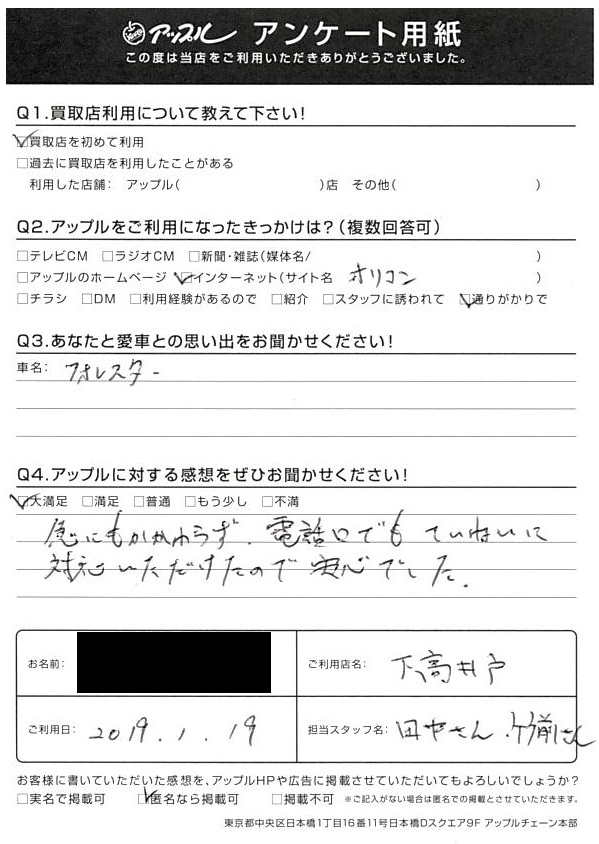 アップル アンケート用紙
この度は当店をご利用いただきありがとうございました。
Q1.買取店利用について教えて下さい!
☑買取店を初めて利用
□過去に買取店を利用したことがある
利用した店舗: アップル( )店 その他( )
Q2.アップルをご利用になったきっかけは?(複数回答可)
□テレビCM □ラジオCM □新聞・雑誌(媒体名/ )
□アップルのホームページ ☑インターネット(サイト名 オリコン )
□チラシ □DM □利用経験があるので □紹介 □スタッフに誘われて ☑通りがかりで
Q3.あなたと愛車との思い出をお聞かせください!
車名: フォレスター
Q4.アップルに対する感想をぜひお聞かせください!
☑大満足 □満足 □普通 □もう少し □不満
急にもかかわらず、電話口でもていねいに
対応いただけたので安心でした。
お名前:
ご利用店名: 下高井戸
ご利用日: 2019.1.19
担当スタッフ名: 田中さん、竹前さん
お客様に書いていただいた感想を、アップルHPや広告に掲載させていただいてもよろしいでしょうか?
□実名で掲載可 ☑匿名なら掲載可 □掲載不可 ※ご記入がない場合は匿名での掲載とさせていただきます。
東京都中央区日本橋1丁目16番11号日本橋Dスクエア9F アップルチェーン本部